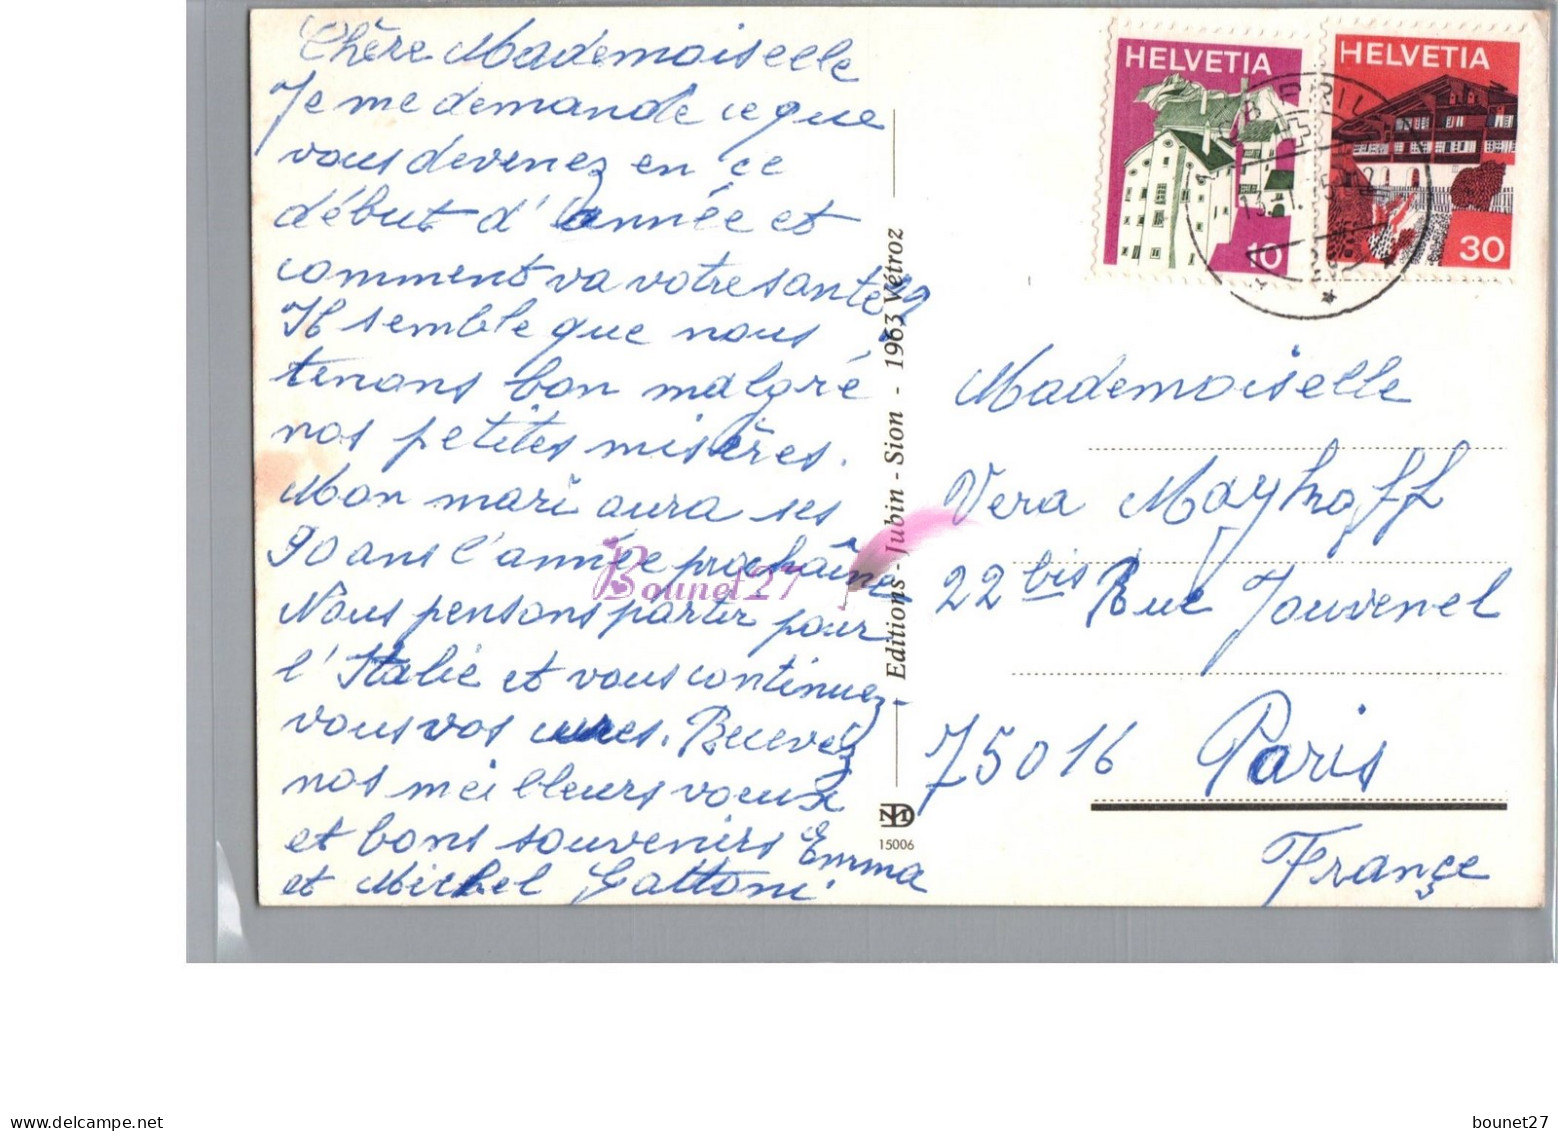 Chère Mademoiselle
Je me demande ce que
vous devenez en ce
début d'année et
comment va votre santé?
Il semble que nous
tenons bon malgré
nos petites misères.
Mon mari aura ses
90 ans l'année prochaîne
Nous pensons partir pour
l'Italie et vous continuez-
vous vos cures. Recevez
nos meilleurs voeux
et bons souvenirs Emma
et Michel Gattoni
Editions - Jubin - Sion - 1963 Vétroz
15006
HELVETIA
10
HELVETIA
30
Mademoiselle
Vera Mayhoff
22 bis Rue Jouvenel
75016 Paris
Françe
Bounet27
delcampe.net
bounet27